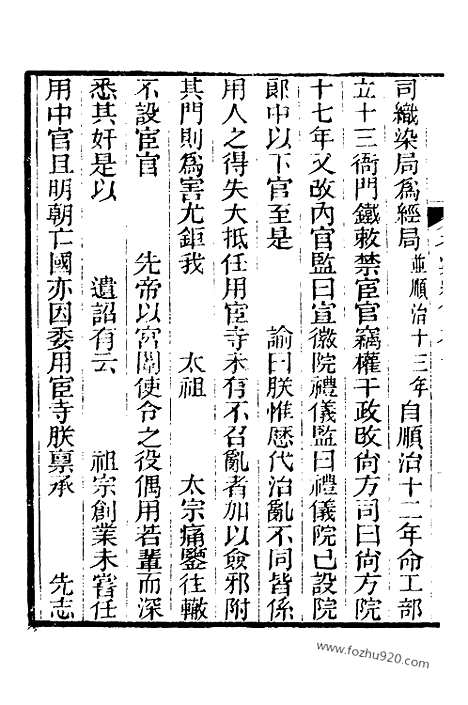 司織染局爲經局並順治十三年自順治十二年命工部
立十三衙門鐵敕禁宦官竊權干政改尙方司曰尙方院
十七年又改內官監曰宣徽院禮儀監曰禮儀院已設院
郎中以下官至是　諭曰朕惟歷代治亂不同皆係
用人之得失大抵任用宦寺未有不召亂者加以僉邪附
其門則爲害尤鉅我　太祖　太宗痛鑒往轍
不設宦官　先帝以宮闈使令之役偶用若輩而深
悉其奸是以　遺詔有云　祖宗創業未嘗任
用中官且明朝亡國亦因委用宦寺朕稟承　先志
www.fozhu920.com